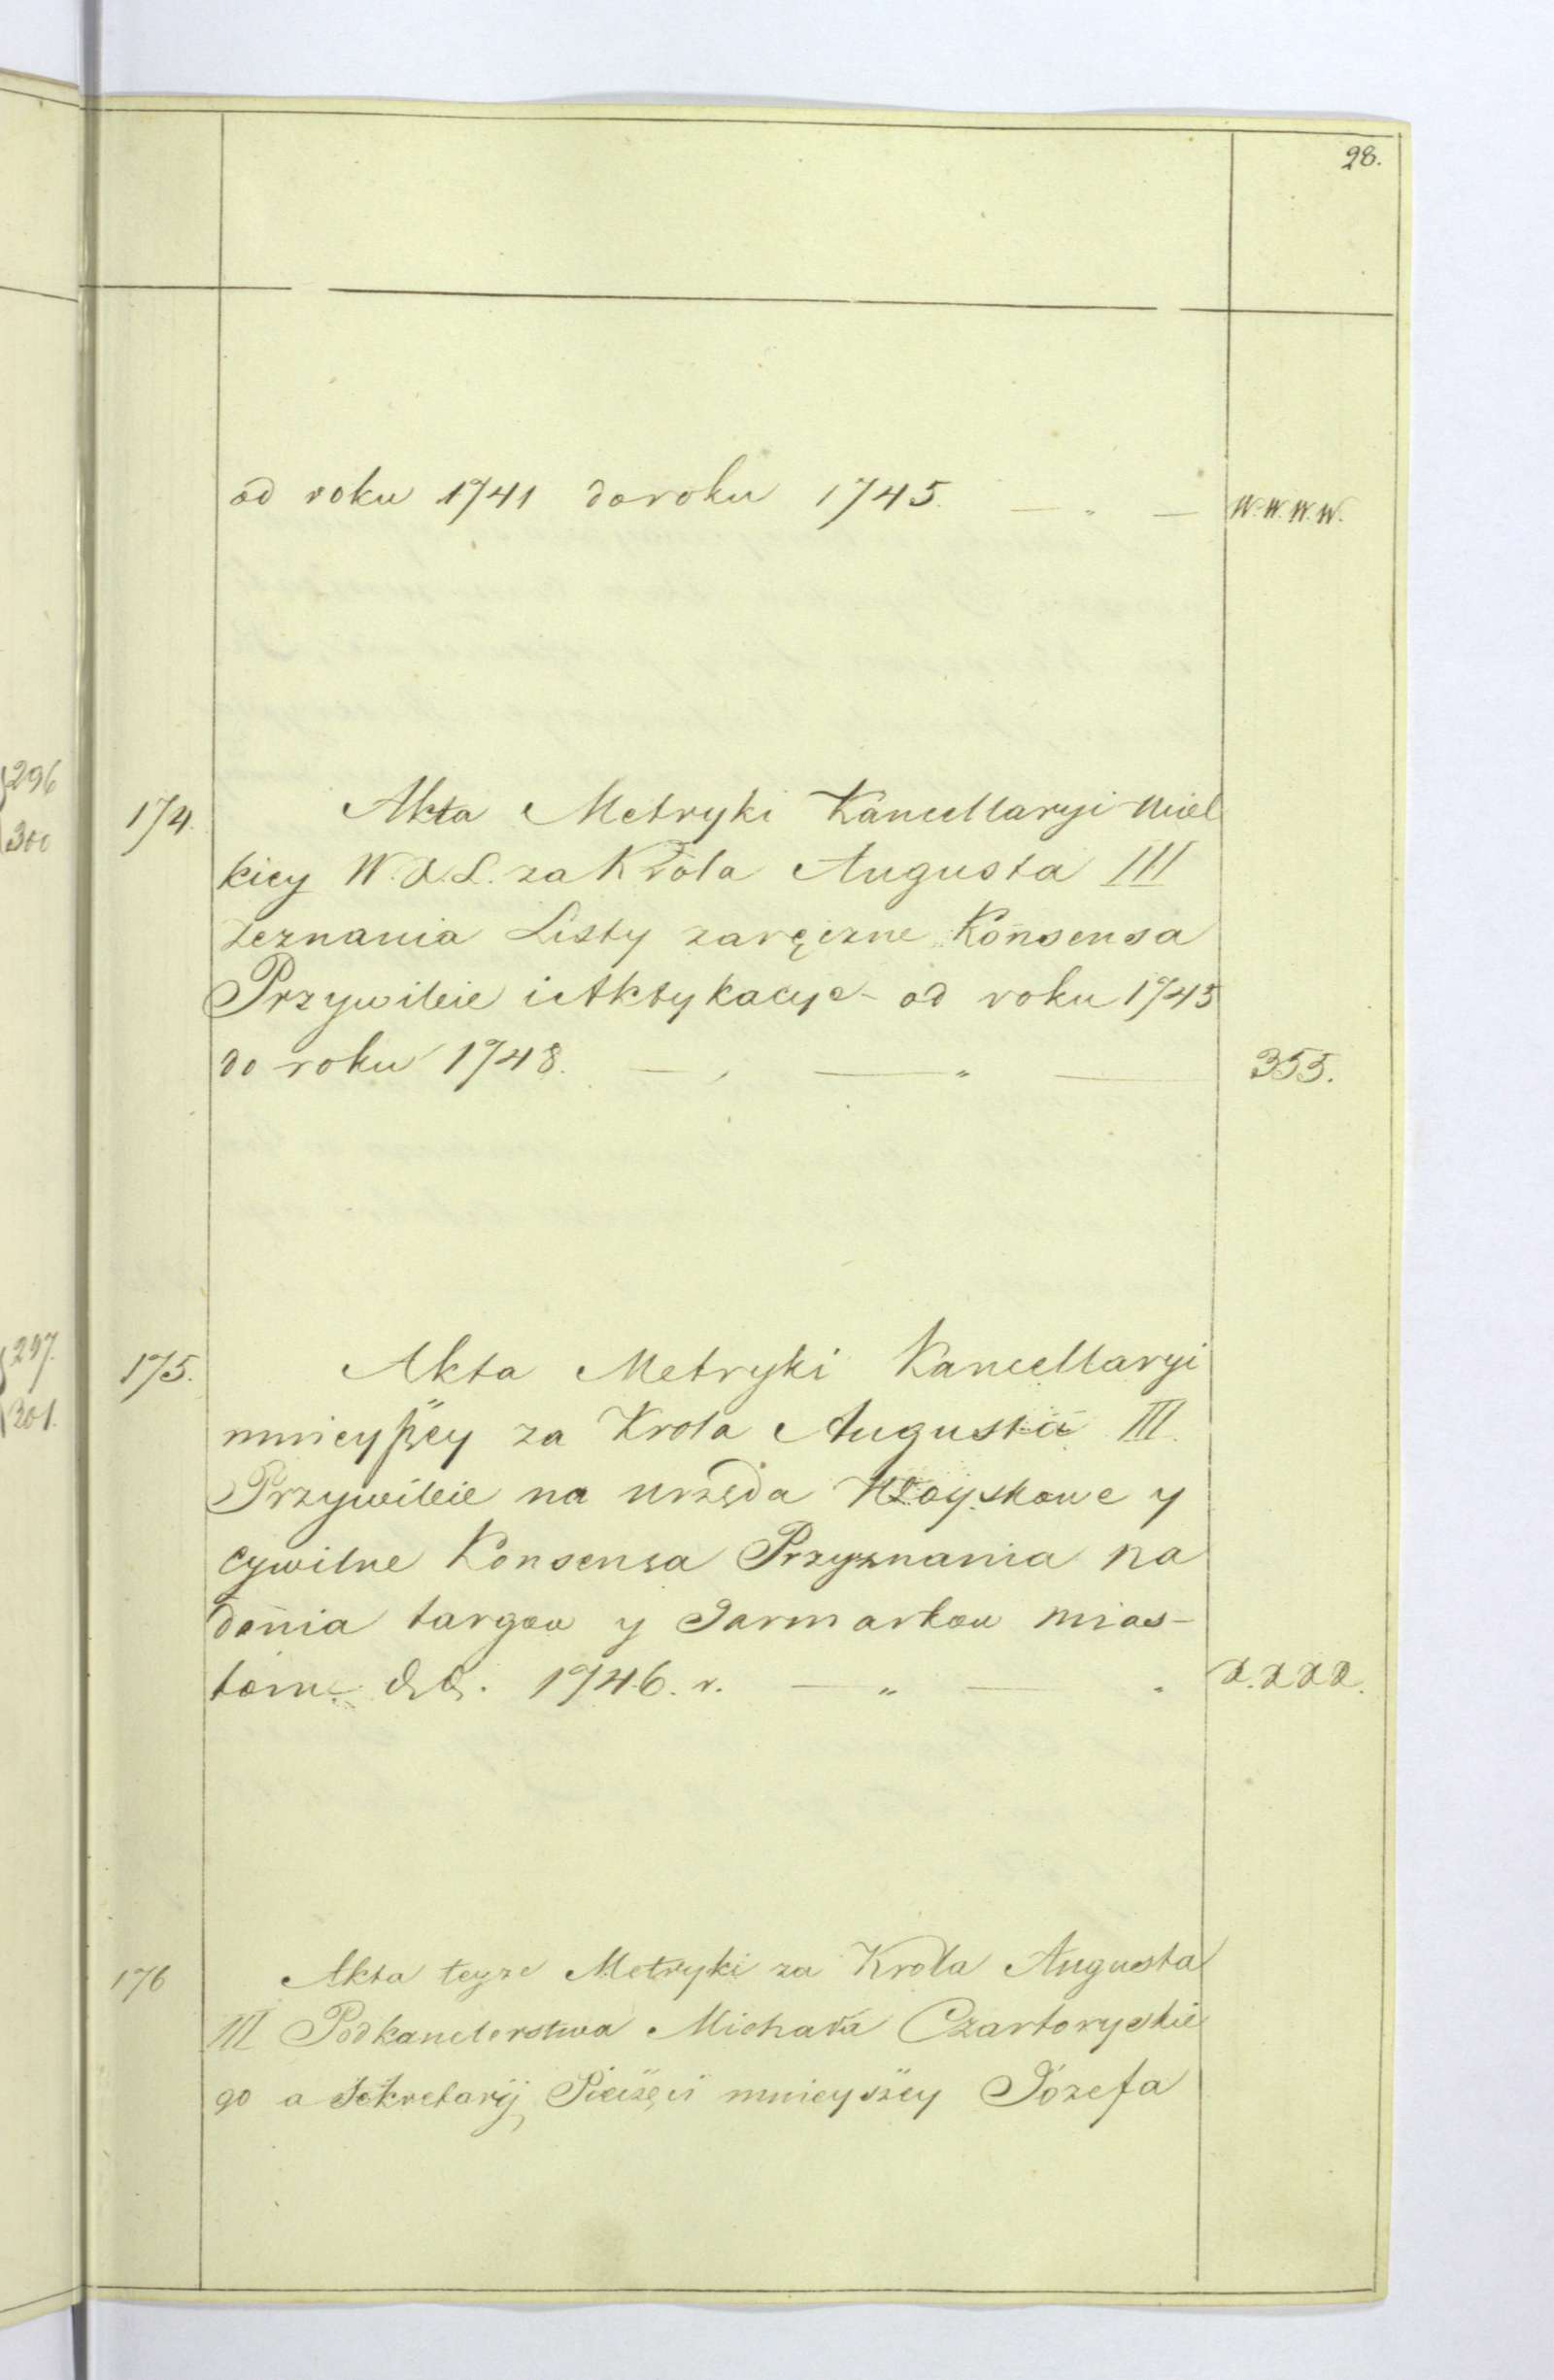 28.
od roku 1741 do roku 1745. W. W. W. W.
296
300
174. Akta Metryki Kancellaryi Wiel
kiey W. X. L. za Króla Augusta III
Zeznania Listy zaręczne Konsensa
Przywileie i Aktykacye od roku 1745
do roku 1748. 355.
297.
301.
175. Akta Metryki Kancellaryi
mnieyszey za Krola Augusta III.
Przywileie na urzęda Woyskowe y
cywilne Konsensa Przyznania na
dania targow y Jarmarkow mias-
tom 1746. r. X. X X X.
176 Akta teyze Metryki za Krola Augusta
III Podkanclerstwa Michała Czartoryskie
go a Sekretarij Pieczęci mnieyszey Józefa